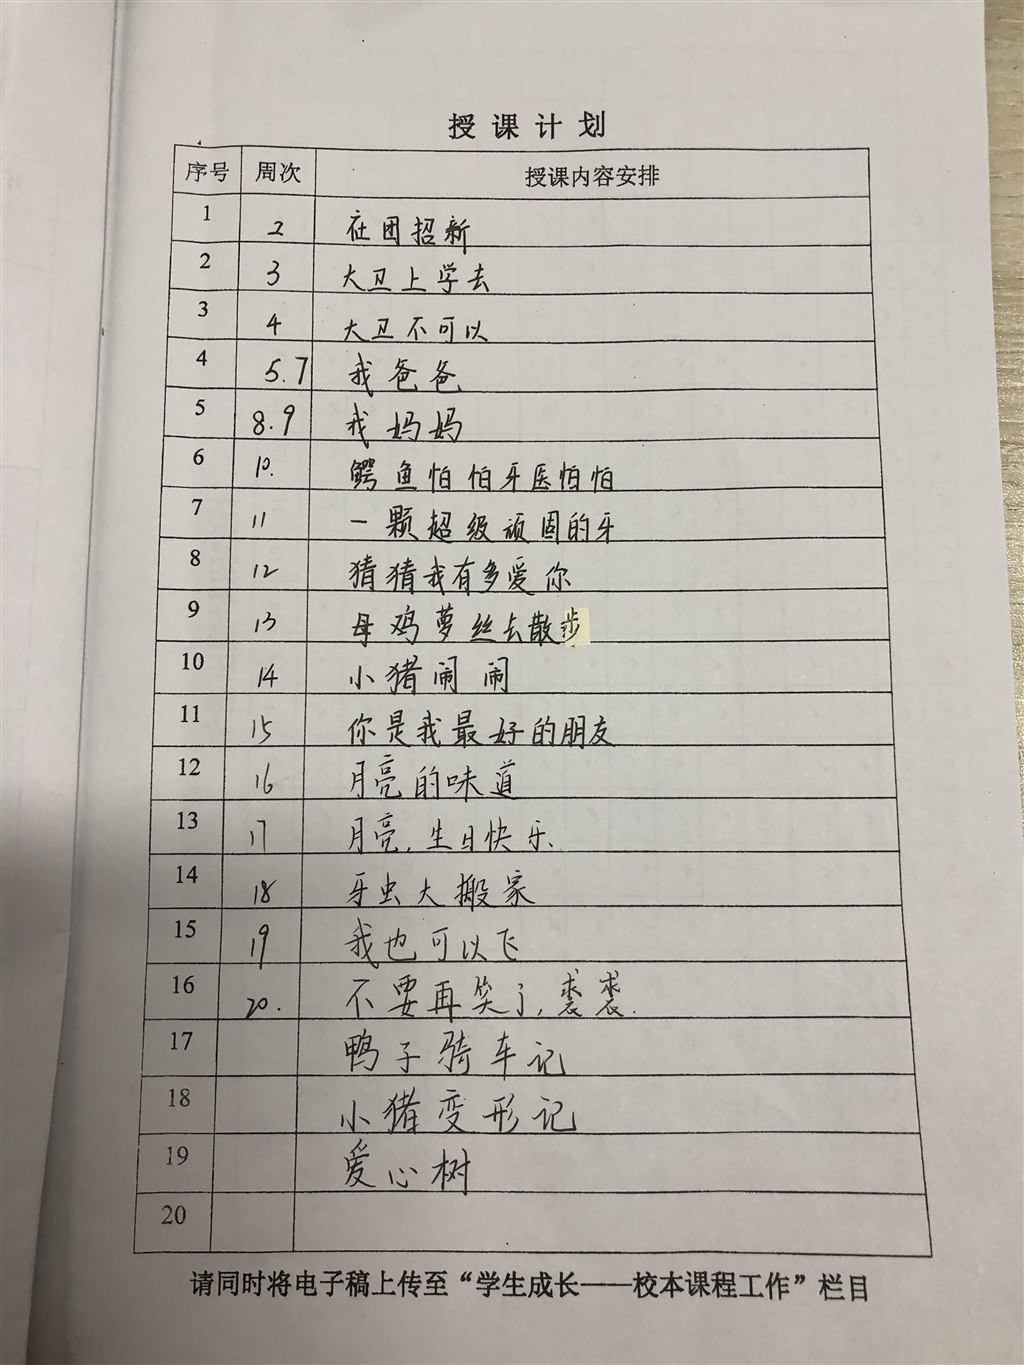 授课计划
序号 周次 授课内容安排
1 2 社团招新
2 3 大卫上学去
3 4 大卫不可以
4 5.7 我爸爸
5 8.9 我妈妈
6 10. 鳄鱼怕怕牙医怕怕
7 11 一颗超级顽固的牙
8 12 猜猜我有多爱你
9 13 母鸡萝丝去散步
10 14 小猪闹闹
11 15 你是我最好的朋友
12 16 月亮的味道
13 17 月亮,生日快乐.
14 18 牙虫大搬家
15 19 我也可以飞
16 20. 不要再笑了,裘裘.
17 鸭子骑车记
18 小猪变形记
19 爱心树
20
请同时将电子稿上传至“学生成长——校本课程工作”栏目